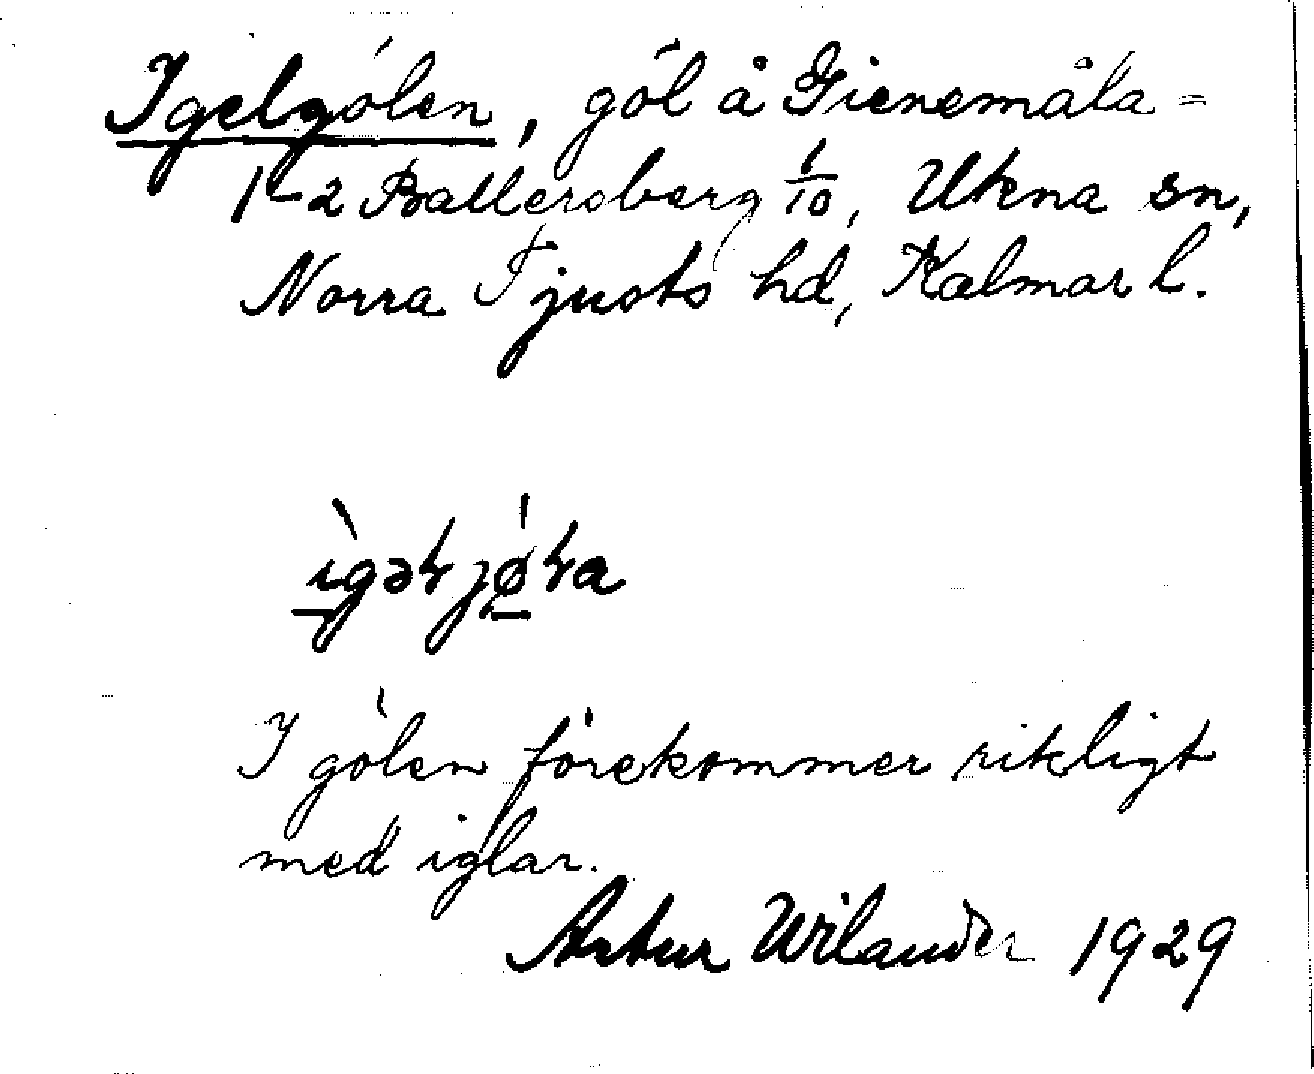 Igelgölen, göl å Gienemåla-
1-2 Ballersberg 1/10, Ukna sn,
Norra Tjusts hd, Kalmar l.
I gölen förekommer rikligt
med iglar.
Artur Wilander 1929